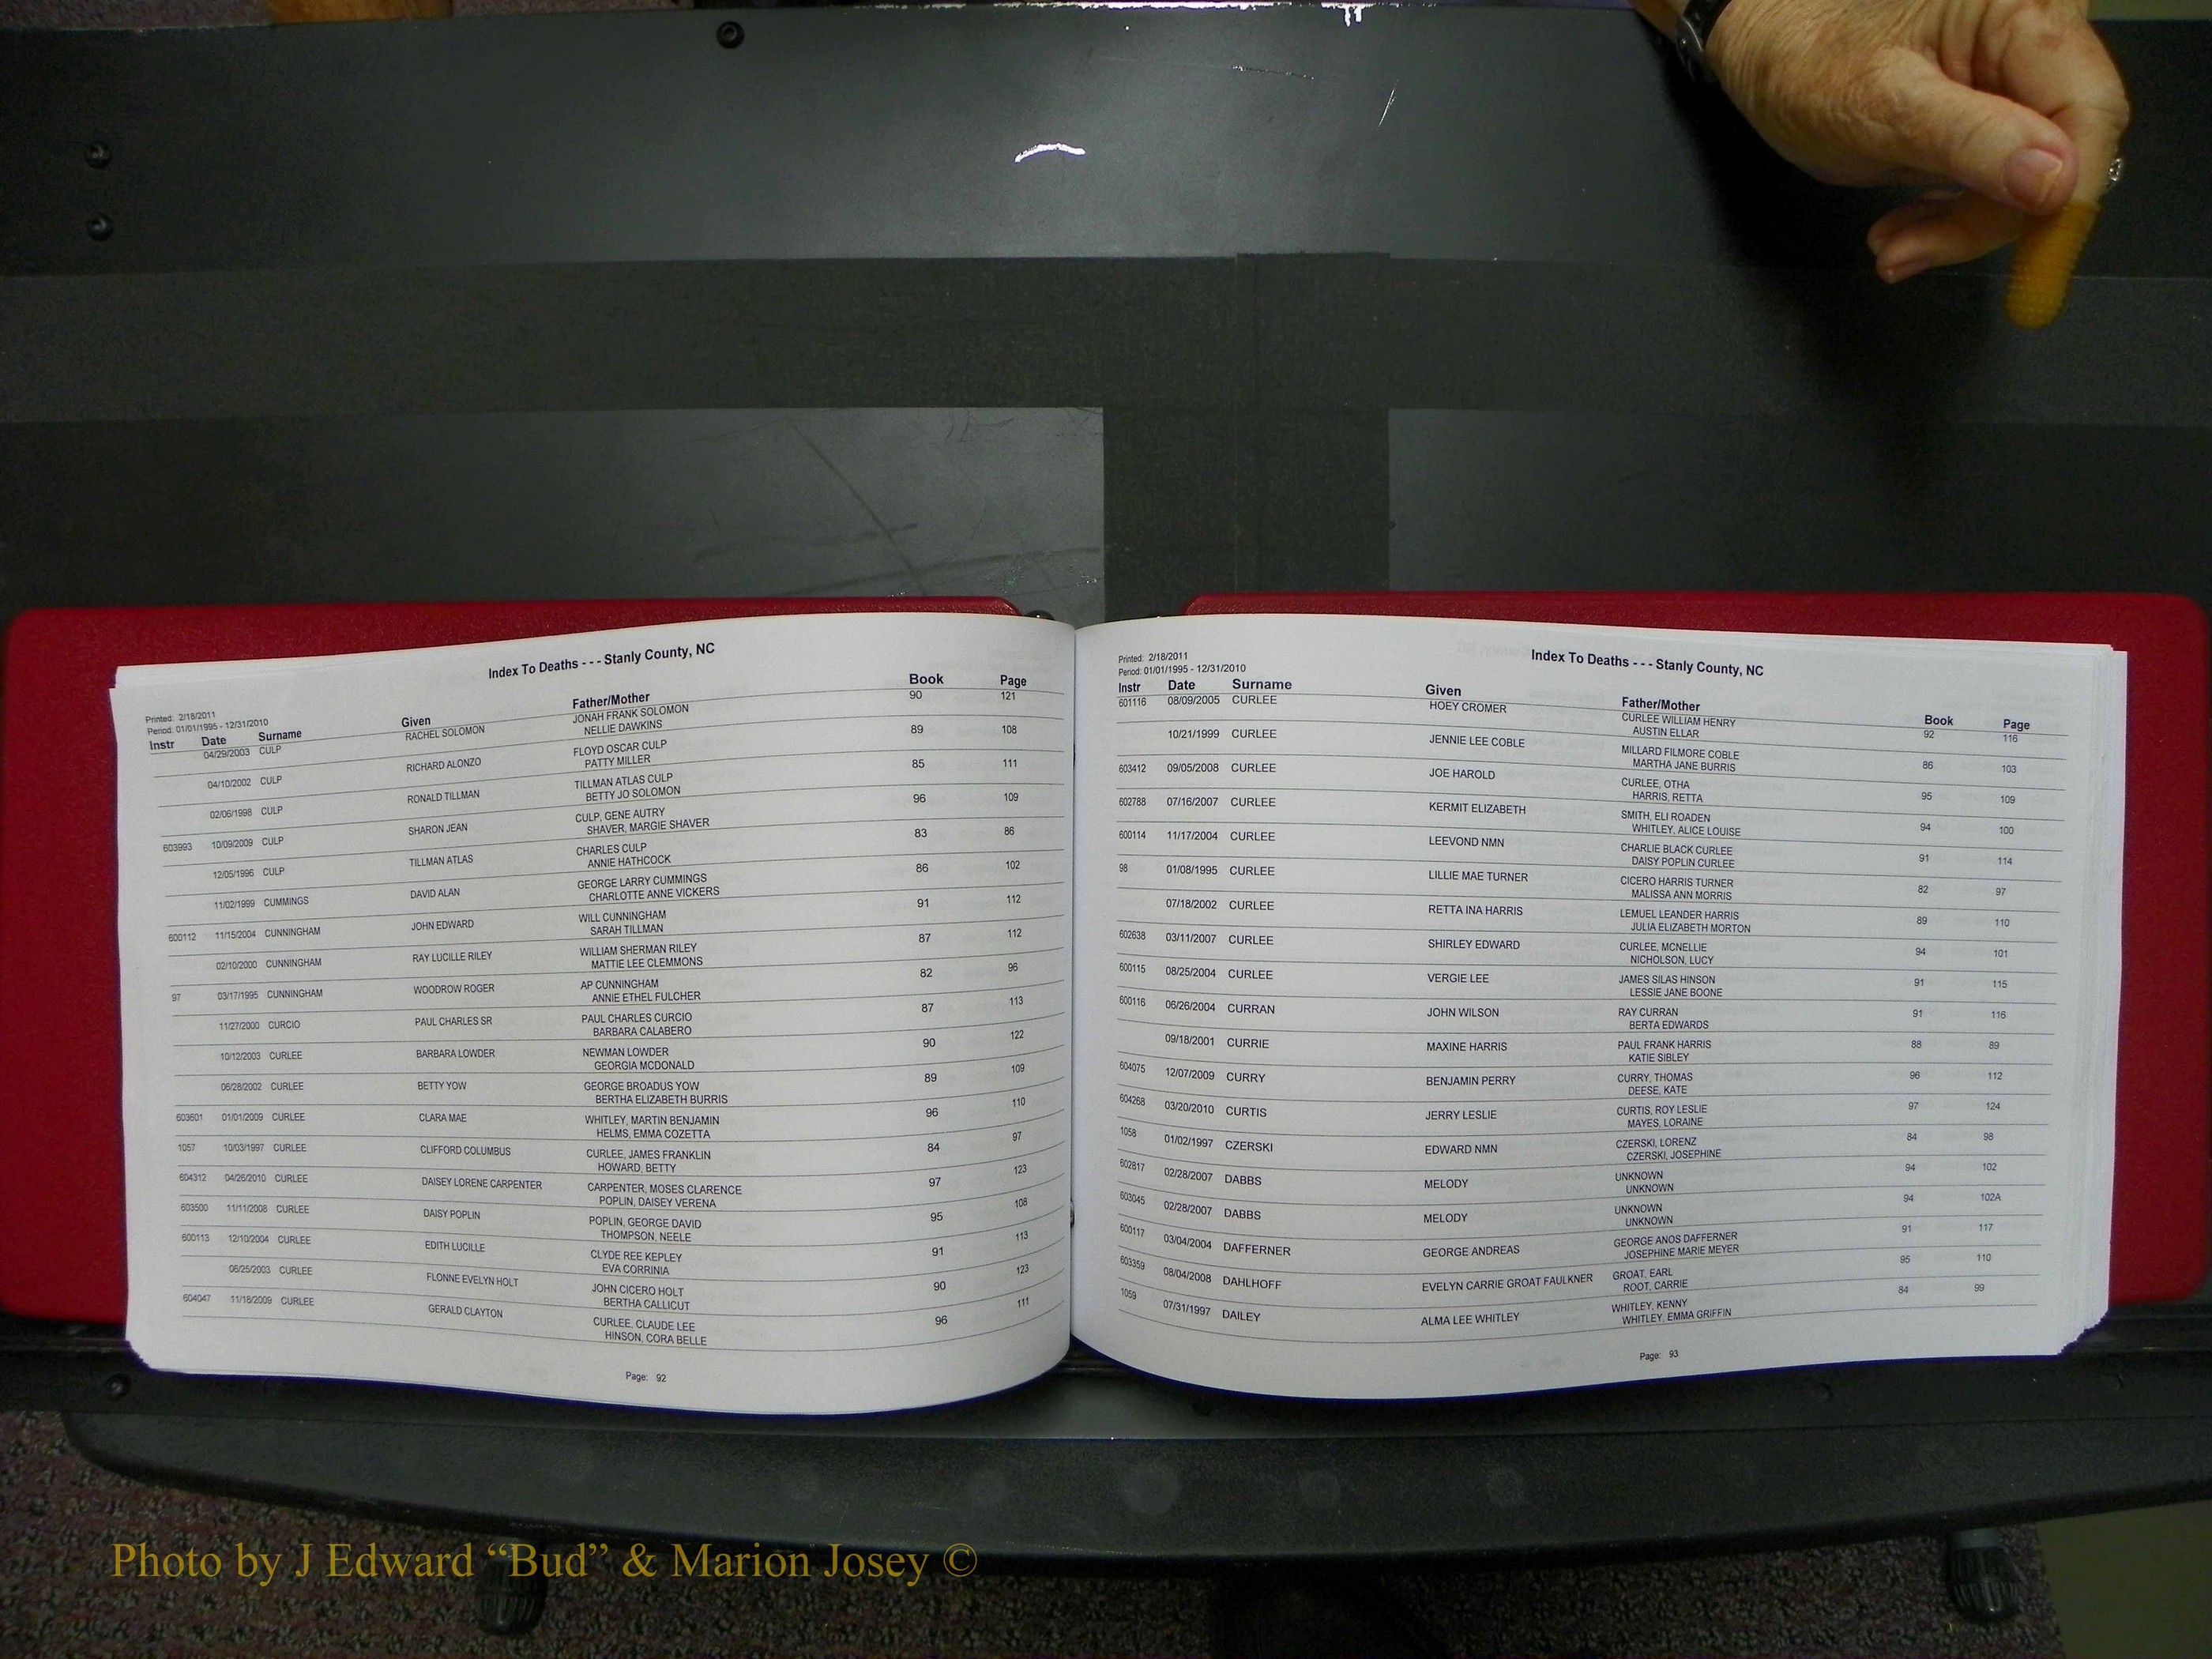 Index To Deaths - - - Stanly County, NC
Printed: 2/18/2011
Period: 01/01/1995 - 12/31/2010
Instr Date Surname Given Father/Mother Book Page
04/29/2003 CULP RACHEL SOLOMON JONAH FRANK SOLOMON 90 121
NELLIE DAWKINS
04/10/2002 CULP RICHARD ALONZO FLOYD OSCAR CULP 89 108
PATTY MILLER
02/06/1998 CULP RONALD TILLMAN TILLMAN ATLAS CULP 85 111
BETTY JO SOLOMON
603993 10/09/2009 CULP SHARON JEAN CULP, GENE AUTRY 96 109
SHAVER, MARGIE SHAVER
12/05/1996 CULP TILLMAN ATLAS CHARLES CULP 83 86
ANNIE HATHCOCK
11/02/1999 CUMMINGS DAVID ALAN GEORGE LARRY CUMMINGS 86 102
CHARLOTTE ANNE VICKERS
600112 11/15/2004 CUNNINGHAM JOHN EDWARD WILL CUNNINGHAM 91 112
SARAH TILLMAN
02/10/2000 CUNNINGHAM RAY LUCILLE RILEY WILLIAM SHERMAN RILEY 87 112
MATTIE LEE CLEMMONS
97 03/17/1995 CUNNINGHAM WOODROW ROGER AP CUNNINGHAM 82 96
ANNIE ETHEL FULCHER
11/27/2000 CURCIO PAUL CHARLES SR PAUL CHARLES CURCIO 87 113
BARBARA CALABERO
10/12/2003 CURLEE BARBARA LOWDER NEWMAN LOWDER 90 122
GEORGIA MCDONALD
06/28/2002 CURLEE BETTY YOW GEORGE BROADUS YOW 89 109
BERTHA ELIZABETH BURRIS
603601 01/01/2009 CURLEE CLARA MAE WHITLEY, MARTIN BENJAMIN 96 110
HELMS, EMMA COZETTA
1057 10/03/1997 CURLEE CLIFFORD COLUMBUS CURLEE, JAMES FRANKLIN 84 97
HOWARD, BETTY
604312 04/26/2010 CURLEE DAISEY LORENE CARPENTER CARPENTER, MOSES CLARENCE 97 123
POPLIN, DAISEY VERENA
603500 11/11/2008 CURLEE DAISY POPLIN POPLIN, GEORGE DAVID 95 108
THOMPSON, NEELE
600113 12/10/2004 CURLEE EDITH LUCILLE CLYDE REE KEPLEY 91 113
EVA CORRINIA
06/25/2003 CURLEE FLONNE EVELYN HOLT JOHN CICERO HOLT 90 123
BERTHA CALLICUT
604047 11/18/2009 CURLEE GERALD CLAYTON CURLEE, CLAUDE LEE 96 111
HINSON, CORA BELLE
Page: 92
Index To Deaths - - - Stanly County, NC
Printed: 2/18/2011
Period: 01/01/1995 - 12/31/2010
Instr Date Surname Given Father/Mother Book Page
601116 08/09/2005 CURLEE HOEY CROMER CURLEE WILLIAM HENRY 92 116
AUSTIN ELLAR
10/21/1999 CURLEE JENNIE LEE COBLE MILLARD FILMORE COBLE 86 103
MARTHA JANE BURRIS
603412 09/05/2008 CURLEE JOE HAROLD CURLEE, OTHA 95 109
HARRIS, RETTA
602788 07/16/2007 CURLEE KERMIT ELIZABETH SMITH, ELI ROADEN 94 100
WHITLEY, ALICE LOUISE
600114 11/17/2004 CURLEE LEEVOND NMN CHARLIE BLACK CURLEE 91 114
DAISY POPLIN CURLEE
98 01/08/1995 CURLEE LILLIE MAE TURNER CICERO HARRIS TURNER 82 97
MALISSA ANN MORRIS
07/18/2002 CURLEE RETTA INA HARRIS LEMUEL LEANDER HARRIS 89 110
JULIA ELIZABETH MORTON
602638 03/11/2007 CURLEE SHIRLEY EDWARD CURLEE, MCNELLIE 94 101
NICHOLSON, LUCY
600115 08/25/2004 CURLEE VERGIE LEE JAMES SILAS HINSON 91 115
LESSIE JANE BOONE
600116 06/26/2004 CURRAN JOHN WILSON RAY CURRAN 91 116
BERTA EDWARDS
09/18/2001 CURRIE MAXINE HARRIS PAUL FRANK HARRIS 88 89
KATIE SIBLEY
604075 12/07/2009 CURRY BENJAMIN PERRY CURRY, THOMAS 96 112
DEESE, KATE
604268 03/20/2010 CURTIS JERRY LESLIE CURTIS, ROY LESLIE 97 124
MAYES, LORAINE
1058 01/02/1997 CZERSKI EDWARD NMN CZERSKI, LORENZ 84 98
CZERSKI, JOSEPHINE
602817 02/28/2007 DABBS MELODY UNKNOWN 94 102
UNKNOWN
603045 02/28/2007 DABBS MELODY UNKNOWN 94 102A
UNKNOWN
600117 03/04/2004 DAFFERNER GEORGE ANDREAS GEORGE ANOS DAFFERNER 91 117
JOSEPHINE MARIE MEYER
603359 08/04/2008 DAHLHOFF EVELYN CARRIE GROAT FAULKNER GROAT, EARL 95 110
ROOT, CARRIE
1059 07/31/1997 DAILEY ALMA LEE WHITLEY WHITLEY, KENNY 84 99
WHITLEY, EMMA GRIFFIN
Page: 93
Photo by J Edward “Bud” & Marion Josey ©